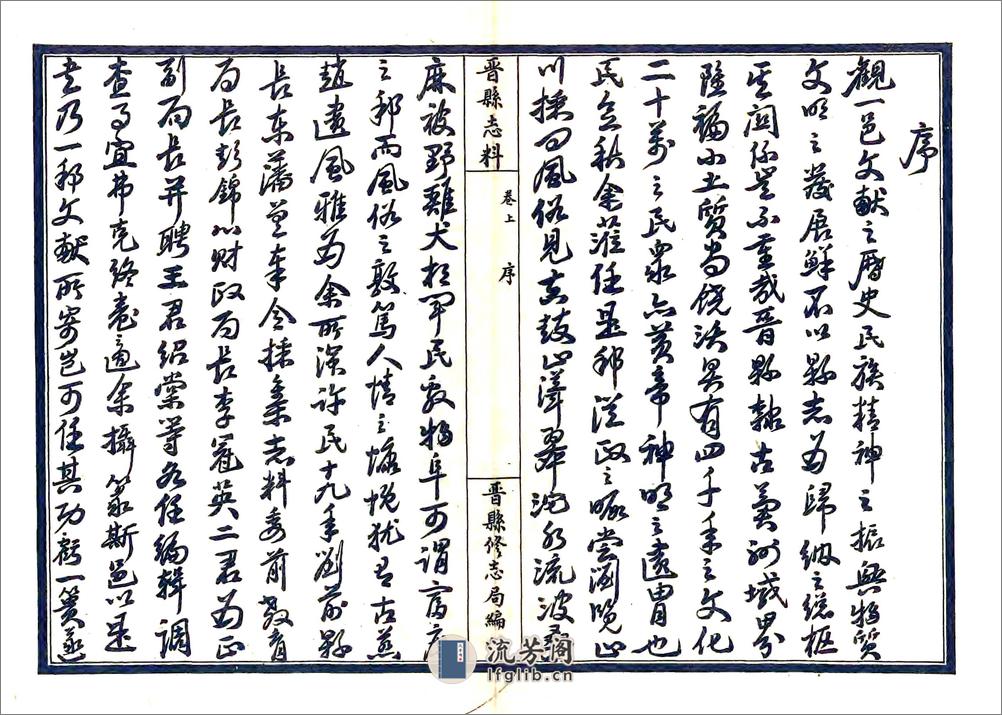 序
觀一邑文獻之歷史民族精神之振興物質
文明之發展鮮不以縣志為歸納之總樞
其關係豈不重哉晉縣隸古冀州域界
隘褊小土質尚饒沃具有四千年之文化
二十萬之民眾亦黃帝神明之遺胄也
民玄秋余蒞任是邦從政之暇嘗瀏覽山
川採問風俗見其鼓山聳翠滹水流波
晉縣志料
卷上 序
晉縣修志局編
麻被野雞犬相聞民安物阜可謂富庶
之邦而風俗之敦篤人情之慷慨猶有古燕
趙遺風雅為余所深許民十九年劉前縣
長東藩曾奉令採集志料委前教育
局長彭錦川財政局長李冠英二君為正
副局長并聘王君紹棠等各任編輯調
查事宜弗克終卷適余攝篆斯邑以是
志乃一邦文獻所寄豈可任其功虧一簣遂
流芳阁
lfglib.cn